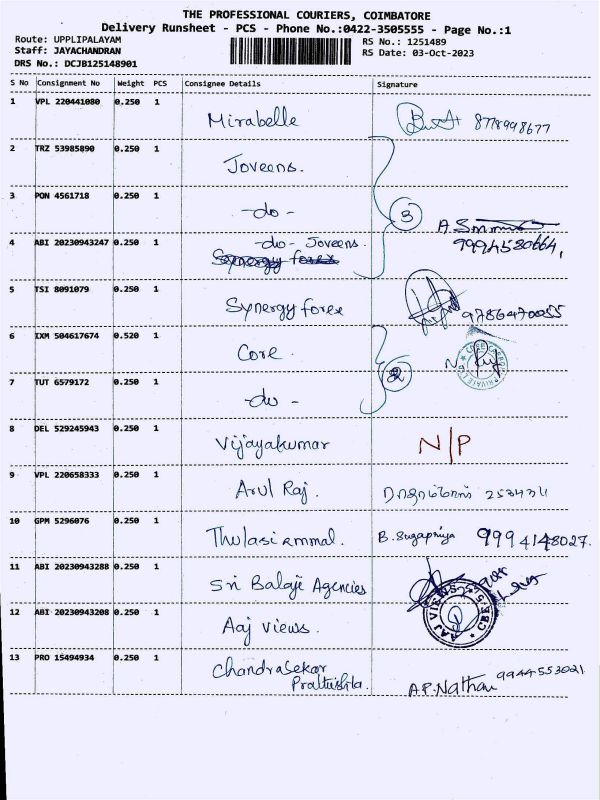 THE PROFESSIONAL COURIERS, COIMBATORE
Delivery Runsheet - PCS - Phone No.:0422-3505555 - Page No.:1
Route: UPPLIPALAYAM
Staff: JAYACHANDRAN
DRS No.: DCJB125148901
RS No.: 1251489
RS Date: 03-Oct-2023
S No Consignment No Weight PCS Consignee Details Signature
1 VPL 220441080 0.250 1 Mirabelle 8778998677
2 TRZ 53985890 0.250 1 Joveens.
3 PON 4561718 0.250 1 -do- 3
4 ABI 20230943247 0.250 1 -do- Joveens. 9994580664,
Synergy forex
5 TSI 8091079 0.250 1 Synergy forex 9786470055
6 IXM 504617674 0.520 1 Core
7 TUT 6579172 0.250 1 -do- 2
8 DEL 529245943 0.250 1 Vijayakumar N/P
9 VPL 220658333 0.250 1 Arul Raj.
10 GPM 5296076 0.250 1 Thulasiammal. B. Sugapriya 9994148027.
11 ABI 20230943288 0.250 1 Sri Balaji Agencies
12 ABI 20230943208 0.250 1 Aaj Views. AAJ VIEWS CBE
13 PRO 15494934 0.250 1 Chandrasekar A.P. Nathan 9944553021